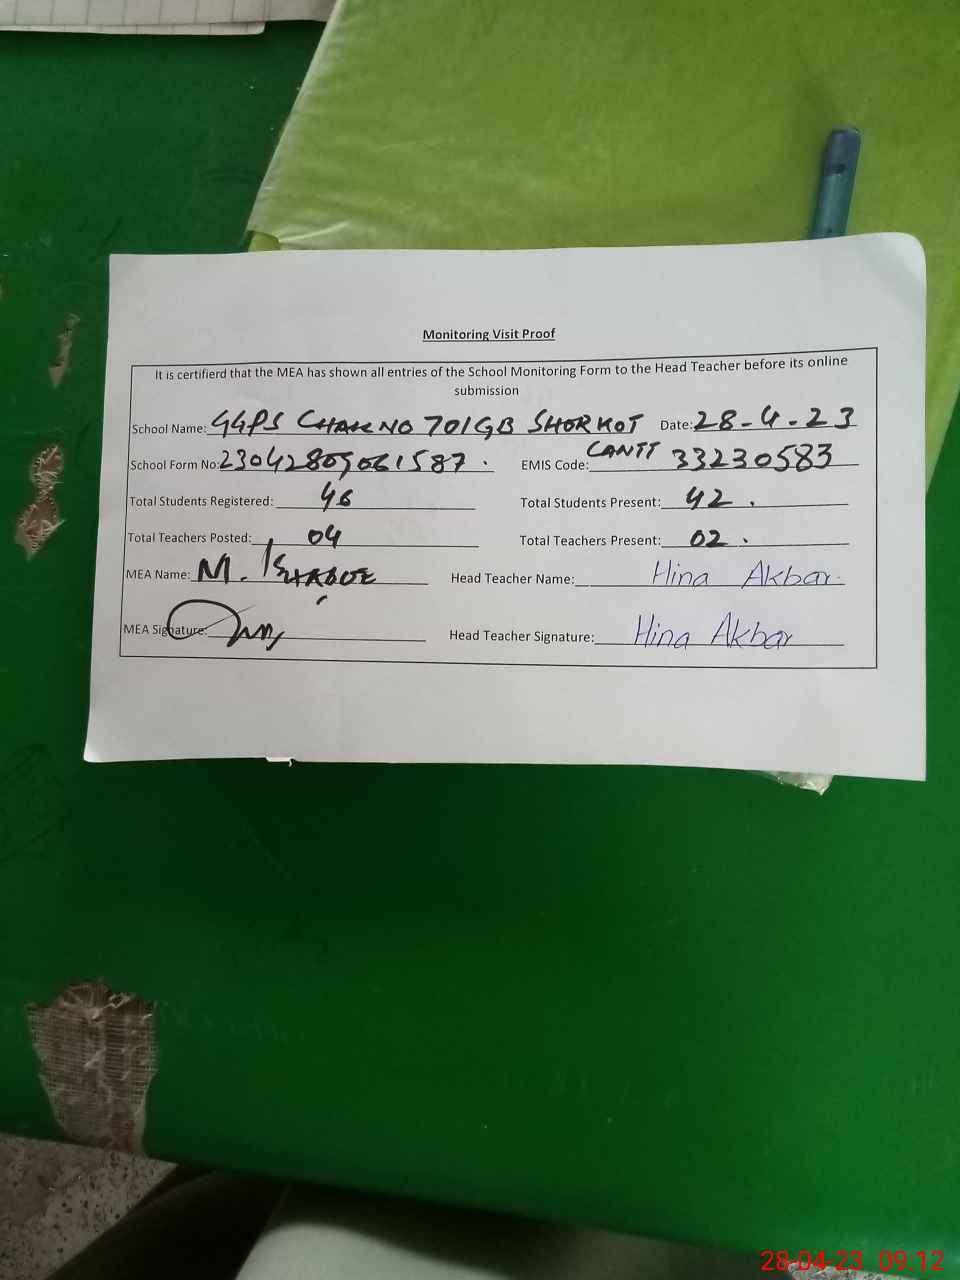 Monitoring Visit Proof
It is certifierd that the MEA has shown all entries of the School Monitoring Form to the Head Teacher before its online
submission
School Name: GGPS CHAK NO 701GB SHORKOT Date: 28-4-23
CANTT
School Form No: 23042809061587. EMIS Code: 33230583
Total Students Registered: 46 Total Students Present: 42.
Total Teachers Posted: 04 Total Teachers Present: 02.
MEA Name: M. Head Teacher Name: Hina Akbar.
MEA Signature: Head Teacher Signature: Hina Akbar
28-04-23 09:12